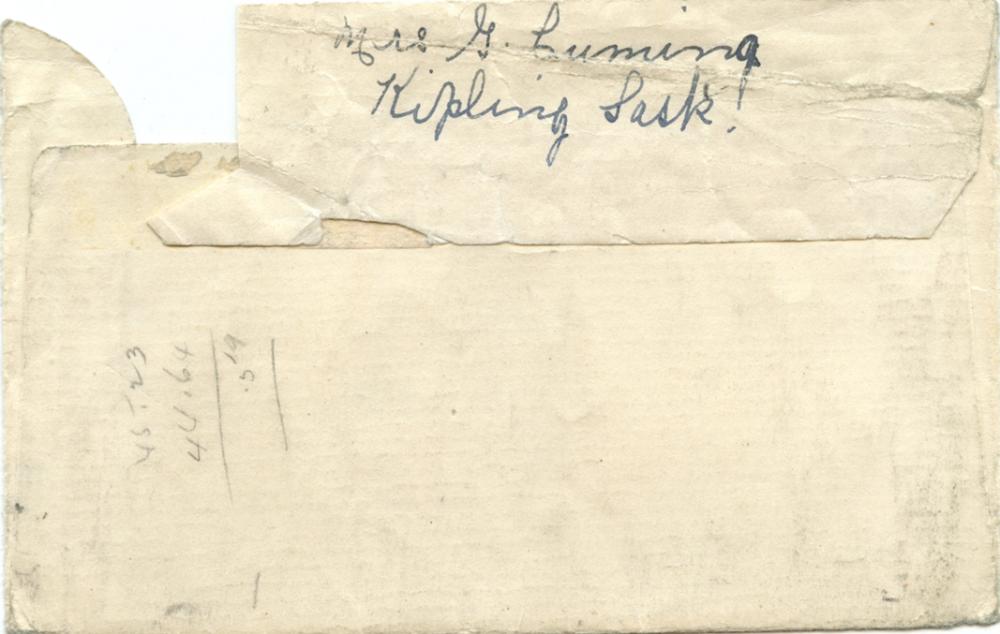 Mrs G. Luming
Kipling Sask!
45.23
44.64
.59